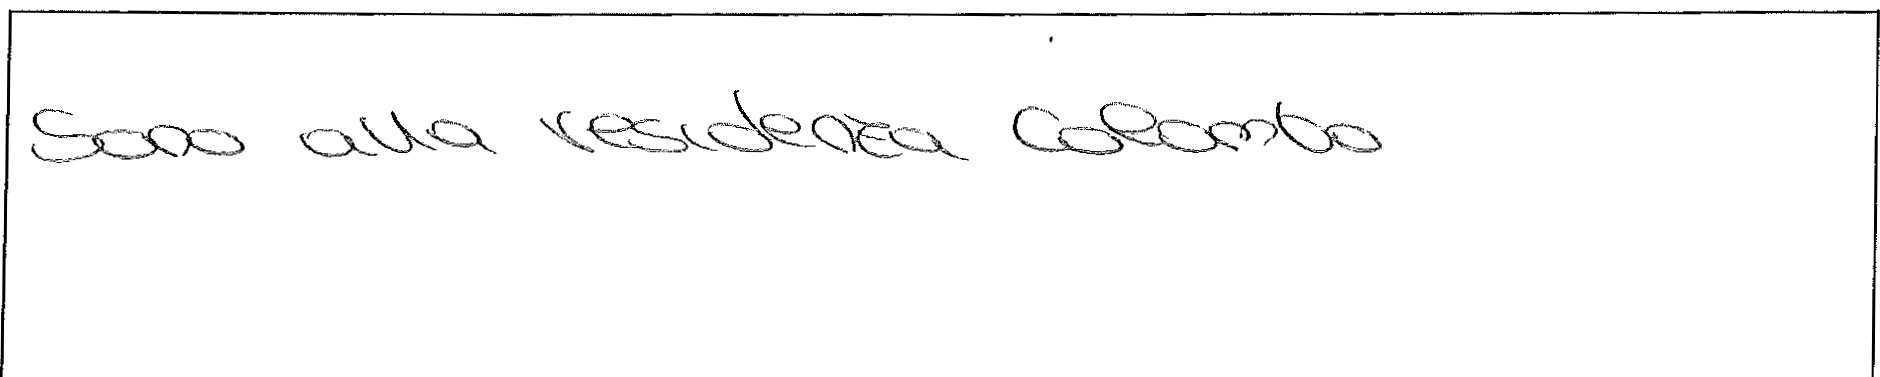 Sono alla residenza Colombo